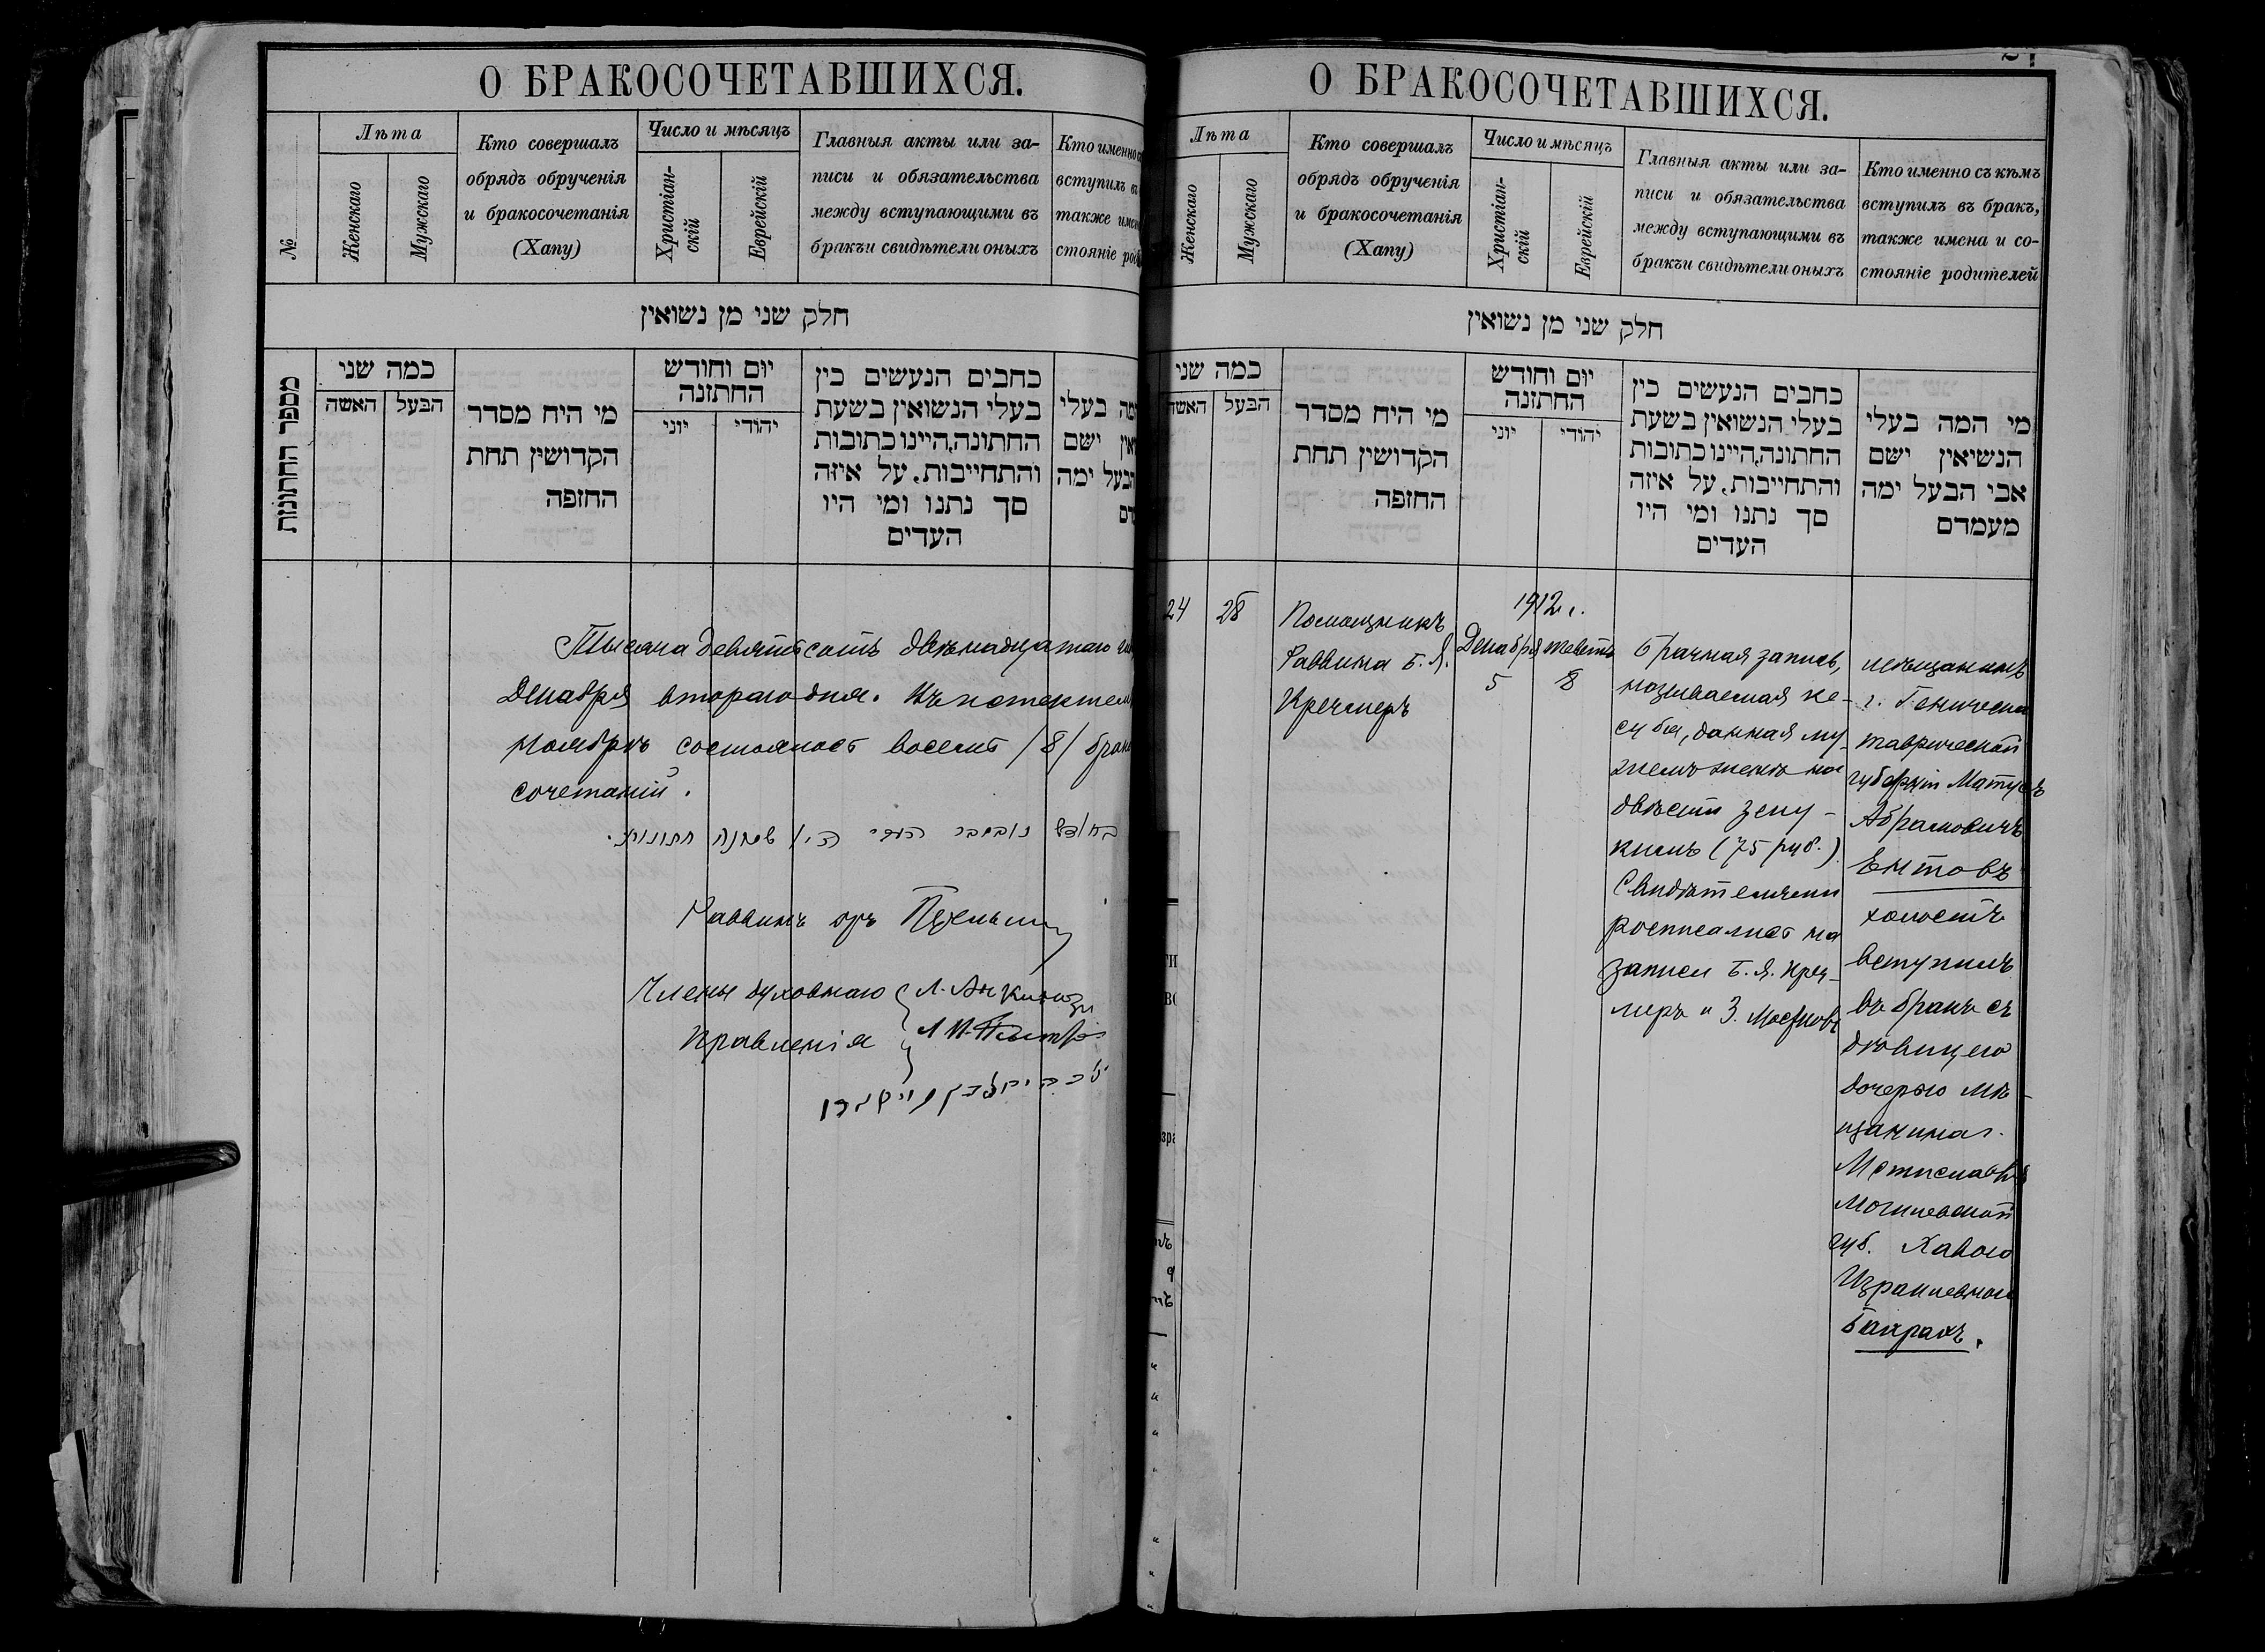 О БРАКОСОЧЕТАВШИХСЯ.
№
Лѣта
Женскаго
Мужскаго
Кто совершалъ
обрядъ обрученія
и бракосочетанія
(Хапу)
Число и мѣсяцъ
Христіан-
скій
Еврейскій
Главныя акты или за-
писи и обязательства
между вступающими въ
бракъи свидѣтели оныхъ
Кто именно
вступилъ въ
также
стояніе
חלק שני מן נשואין
מספר החתונות
כמה שני
האשה
הבעל
מי היה מסדר
הקדושין תחת
החופה
יום וחודש
החתונה
יוני
יהודי
כתבים הנעשים בין
בעלי הנשואין בשעת
החתונה,היינו כתובות
והתחייבות, על איזה
סך נתנו ומי היו
העדים
בעלי
ישם
ימה
Тысяча девятьсотъ двѣнадцатаго
Декабря второго дня. Въ истекшемъ
ноябрѣ состоялось восемь /8/
сочетаній.
בחודש נובעבר היו שמנה חתונות.
Раввинъ
Члены духовнаго
Правленія
О БРАКОСОЧЕТАВШИХСЯ.
Лѣта
Женскаго
Мужскаго
Кто совершалъ
обрядъ обрученія
и бракосочетанія
(Хапу)
Число и мѣсяцъ
Христіан-
скій
Еврейскій
Главныя акты или за-
писи и обязательства
между вступающими въ
бракъи свидѣтели оныхъ
Кто именно съ кѣмъ
вступилъ въ бракъ,
также имена и со-
стояніе родителей
חלק שני מן נשואין
כמה שני
האשה
הבעל
מי היה מסדר
הקדושין תחת
החופה
יום וחודש
החתונה
יוני
יהודי
כתבים הנעשים בין
בעלי הנשואין בשעת
החתונה,היינו כתובות
והתחייבות, על איזה
סך נתנו ומי היו
העדים
מי המה בעלי
הנשיאין ישם
אבי הבעל ימה
מעמדם
24
28
Помощникъ
Раввина Б. Я.
Кречмеръ
1912 г.
Декабря
5
тебетъ
8
брачная запись,
называемая ке-
суба, данная му-
жемъ женѣ на
двѣсти зеху-
кимъ (75 руб.)
Свидѣтелями
росписались на
записи Б. Я. Креч-
меръ и З.
мѣщанинъ
г. Геническа
таврической
губерніи Матусъ
Абрамовичъ
Ентовъ
холостъ
вступилъ
въ бракъ съ
дѣвицею
дочерью мѣ-
щанина г.
Мстиславля
Могилевской
губ. Хавою
Израилевною
Бахрахъ.